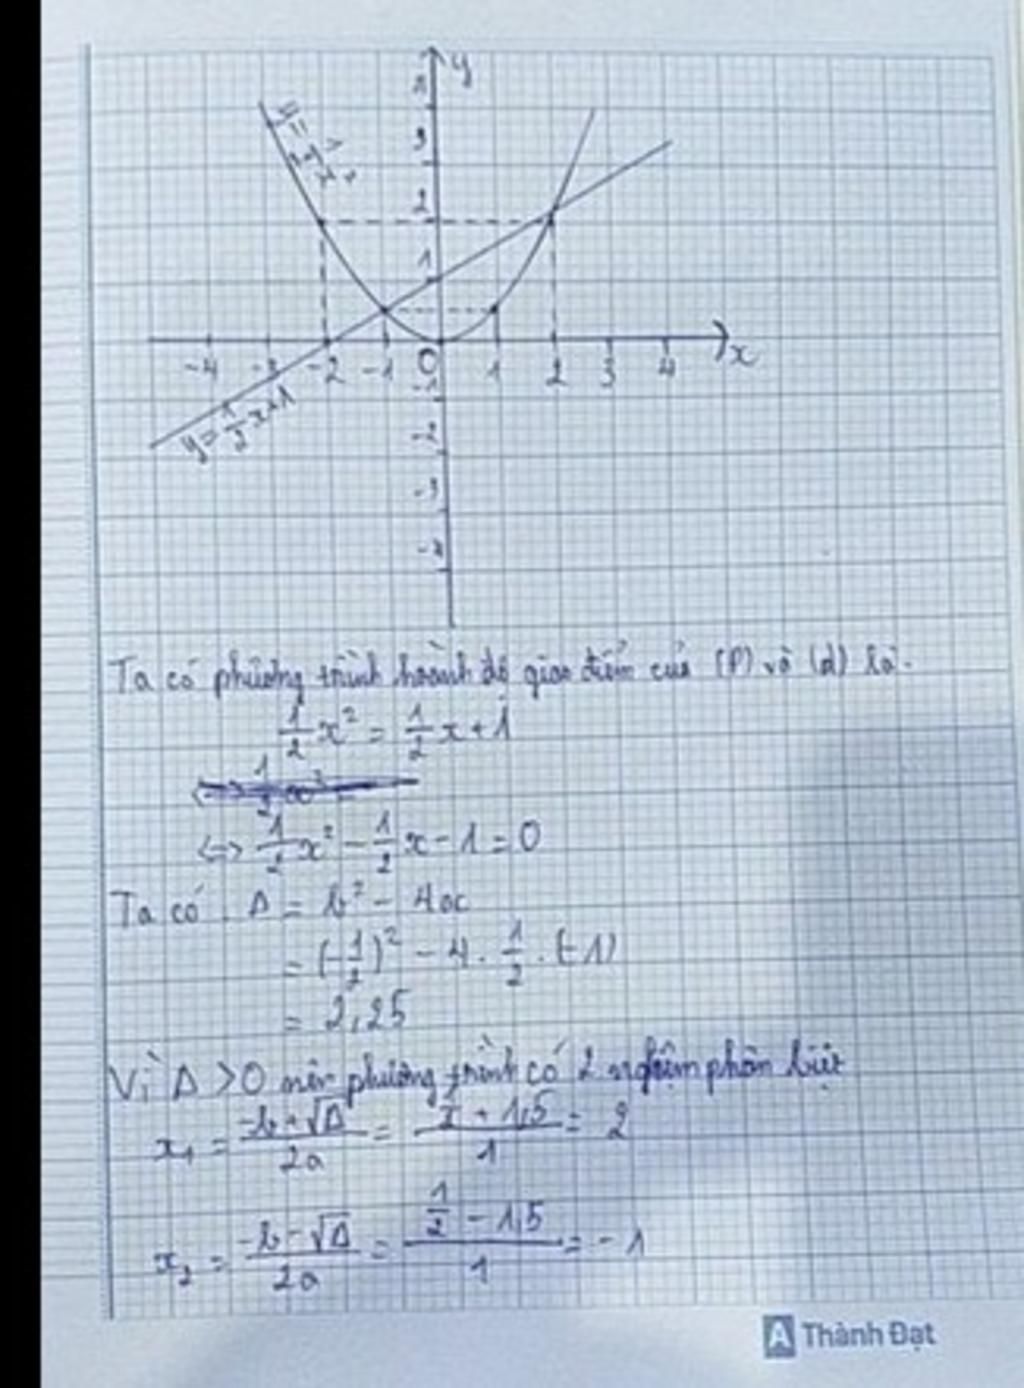 y
4
3
2
1
y = 1/2 x²
-4 -3 -2 -1 O 1 2 3 4 x
-1
y = 1/2 x + 1
-2
-3
-4
Ta có phương trình hoành độ giao điểm của (P) và (d) là.
1/2 x² = 1/2 x + 1
<=> 1/2 x² - 1/2 x - 1 = 0
Ta có . Δ = b² - 4ac
= (-1/2)² - 4 . 1/2 . (-1)
= 2,25
Vì Δ > 0 nên phương trình có 2 nghiệm phân biệt
x₁ = (-b + √Δ)/2a = (1/2 + 1,5)/1 = 2
x₂ = (-b - √Δ)/2a = (1/2 - 1,5)/1 = -1
A Thành Đạt